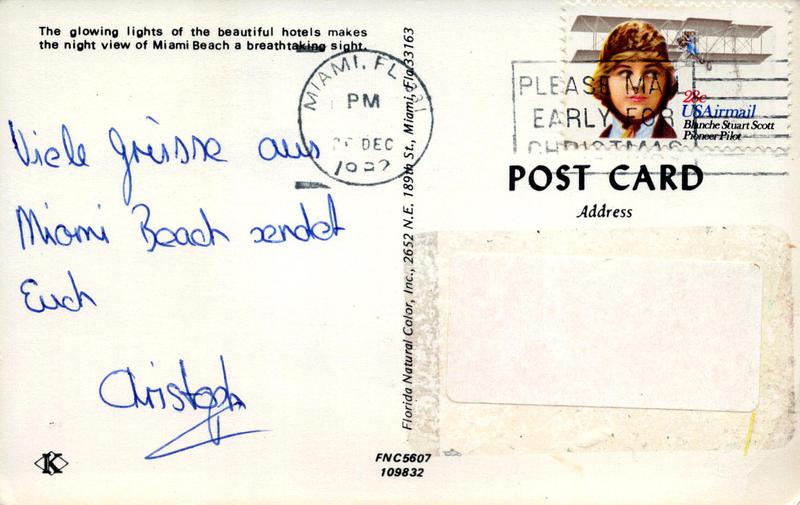 The glowing lights of the beautiful hotels makes
the night view of Miami Beach a breathtaking sight.
Viele grüsse aus
Miami Beach sendet
Euch
Christoph
K
Florida Natural Color, Inc., 2652 N.E. 189th St., Miami, Fla 33163
FNC5607
109832
MIAMI, FL 331
PM
DEC
PLEASE MAIL
EARLY FOR
CHRISTMAS
28c
USAirmail
Blanche Stuart Scott
Pioneer Pilot
POST CARD
Address